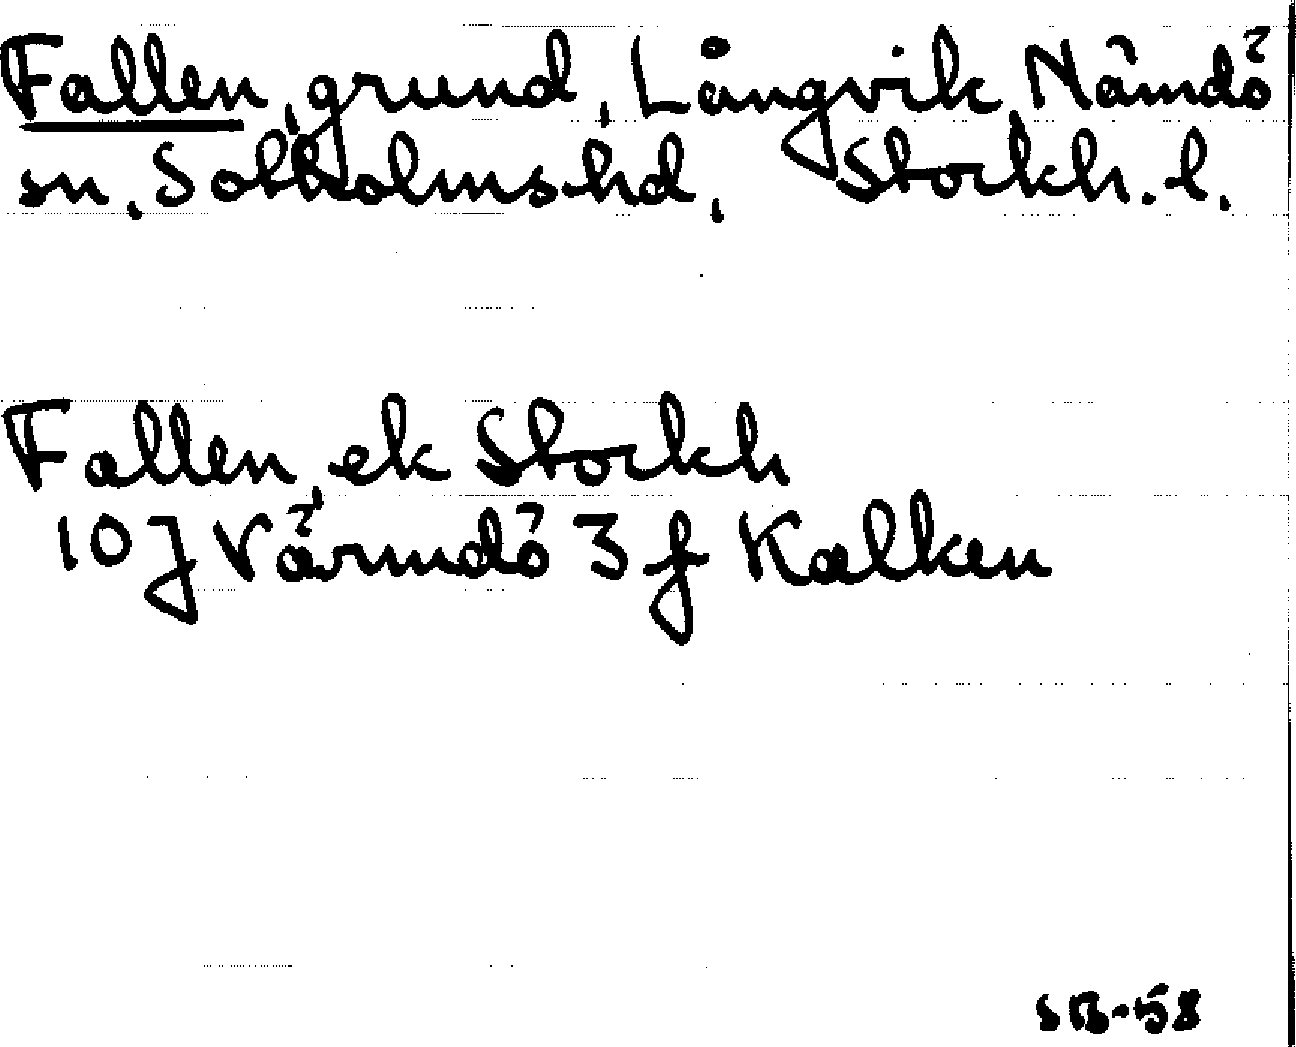 Fallen, grund, Långvik, Nämdö
sn, Sotholms hd, Stockh. l.
Fallen, ek Stockh
10 J Värmdö 3 f Kalken
SB-58